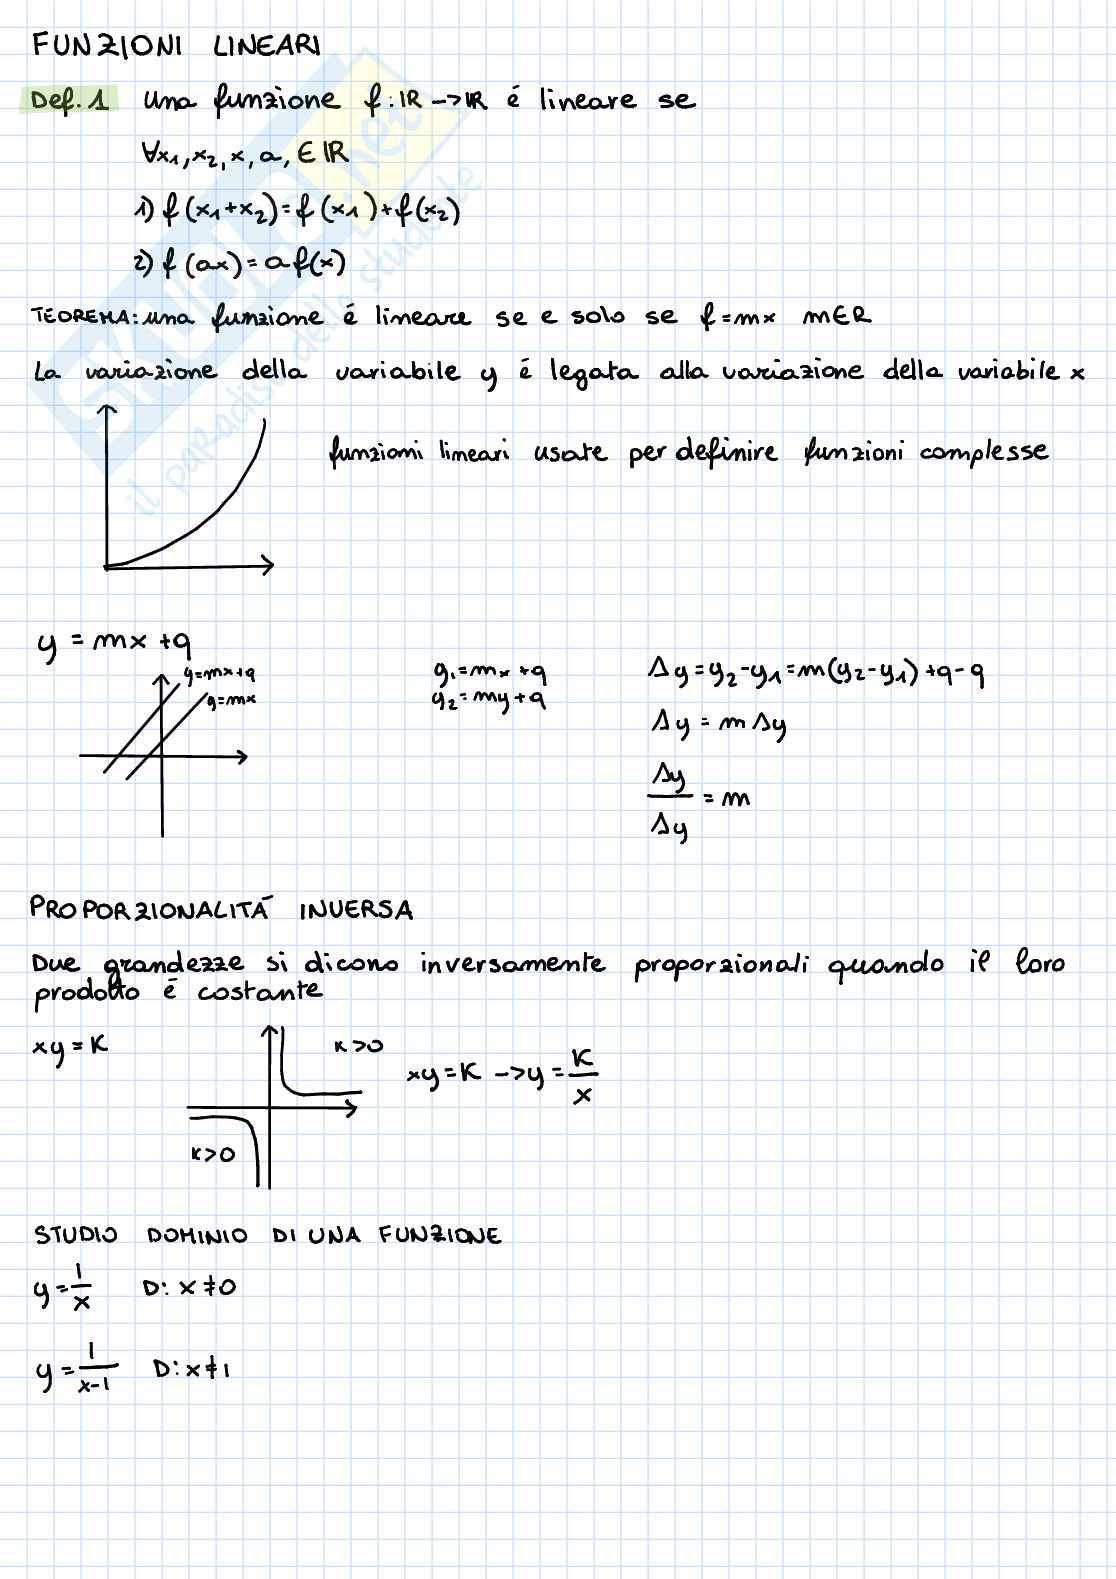 FUNZIONI LINEARI
Def. 1 Una funzione f: ℝ -> ℝ é lineare se
∀x₁, x₂, x, a, ∈ ℝ
1) f(x₁+x₂)=f(x₁)+f(x₂)
2) f(ax)=a f(x)
TEOREMA: una funzione é lineare se e solo se f=mx m∈R
La variazione della variabile y é legata alla variazione della variabile x
funzioni lineari usate per definire funzioni complesse
y = mx +q
y=mx+q
y=mx
y₁=mx +q
y₂=my+q
Δy=y₂-y₁=m(y₂-y₁)+q-q
Δy = m Δy
Δy/Δy = m
PROPORZIONALITÁ INVERSA
Due grandezze si dicono inversamente proporzionali quando il loro
prodotto é costante
xy=K
K>0
K>0
xy=K ->y=K/x
STUDIO DOMINIO DI UNA FUNZIONE
y=1/x D: x≠0
y=1/(x-1) D: x≠1
SKUOLA.net
il paradiso dello studente